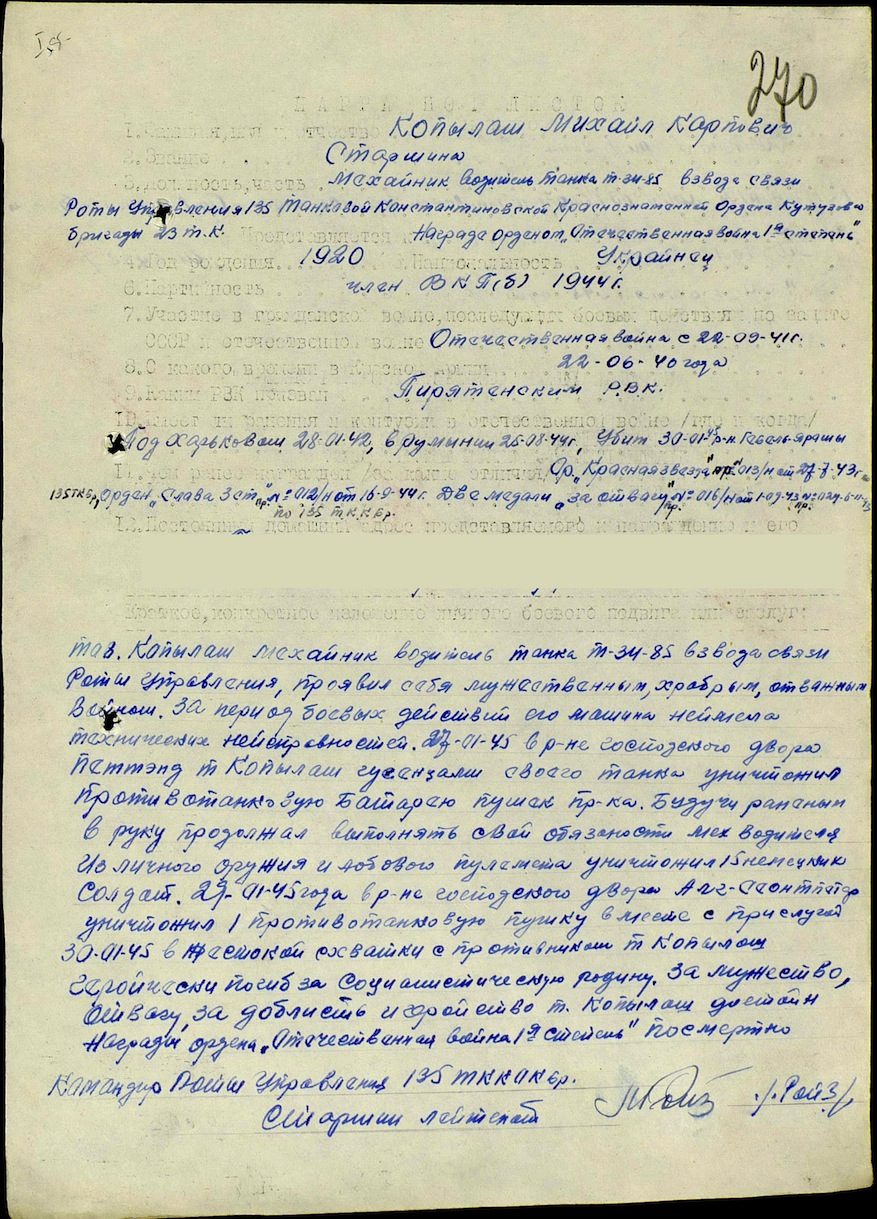 270
НАГРАДНОЙ ЛИСТОК
1. Фамилия, имя и отчество Копылаш Михаил Карпович
2. Звание Старшина
3. Должность, часть Механик водитель танка т-34-85 взвода связи
Роты Управления 135 танковой Константиновской Краснознаменной Ордена Кутузова
бригады 23 т.к. Представляется к Награде орденом „Отечественная война 1й степень"
4. Год рождения 1920 Национальность Украйнец
6. Партийность член ВКП(б) 1944г.
7. Участие в гражданской войне, последующих боевых действиях по защите
СССР и отечественной войне Отечественная война с 22-09-41г.
8. С какого времени в Красной армии 22-06-40 года
9. Каким РВК призван Пирятенским Р.В.К.
10. Имеет ли ранения и контузии в отечественной войне /где и когда/
Под Харьковом 28-01-42, в румынии 25-08-44г, Убит 30-01-45 р-н.
11. Чем ранее награжден /за какие отличия/ Ор. „Красная звезда" пр. 013/н от 27-7-43г.
135 ТКБр, Орден „Слава 3 ст" пр. №012/н от 16-9-44г. Две медали „за отвагу" пр. №016/н от 1-09-43
по 135 т.к.к бр.
12. Постоянный домашний адрес представляемого к награждению и его
Краткое, конкретное изложение личного боевого подвига или заслуг:
тов. Копылаш механик водитель танка т-34-85 взвода связи
Роты Управления, проявил себя мужественным, храбрым, отважным
Войном. За период боевых действий его машина неймела
технических нейсправностей. 27-01-45 в р-не господского двора
Паттэнд т Копылаш гусенцами своего танка уничтожил
противотанковую Батарею пушек пр-ка. Будучи раненым
в руку продолжал выполнять свои обязоности мех водителя
Из личного оружия и лобового пулемета уничтожил 15 немецких
солдат. 29-01-45 года в р-не господского двора
уничтожил 1 противотанковую пушку вместе с прислугой
30-01-45 в жестокой схватки с противником т Копылаш
геройчески погиб за Социалистическую родину. За мужество,
Отвагу, за доблисть и геройство т. Копылаш достойн
Награды ордена „Отечественная война 1й степень" посмертно
Командир Роты Управления 135 ТККОК бр.
Старший лейтенант /Ройз/